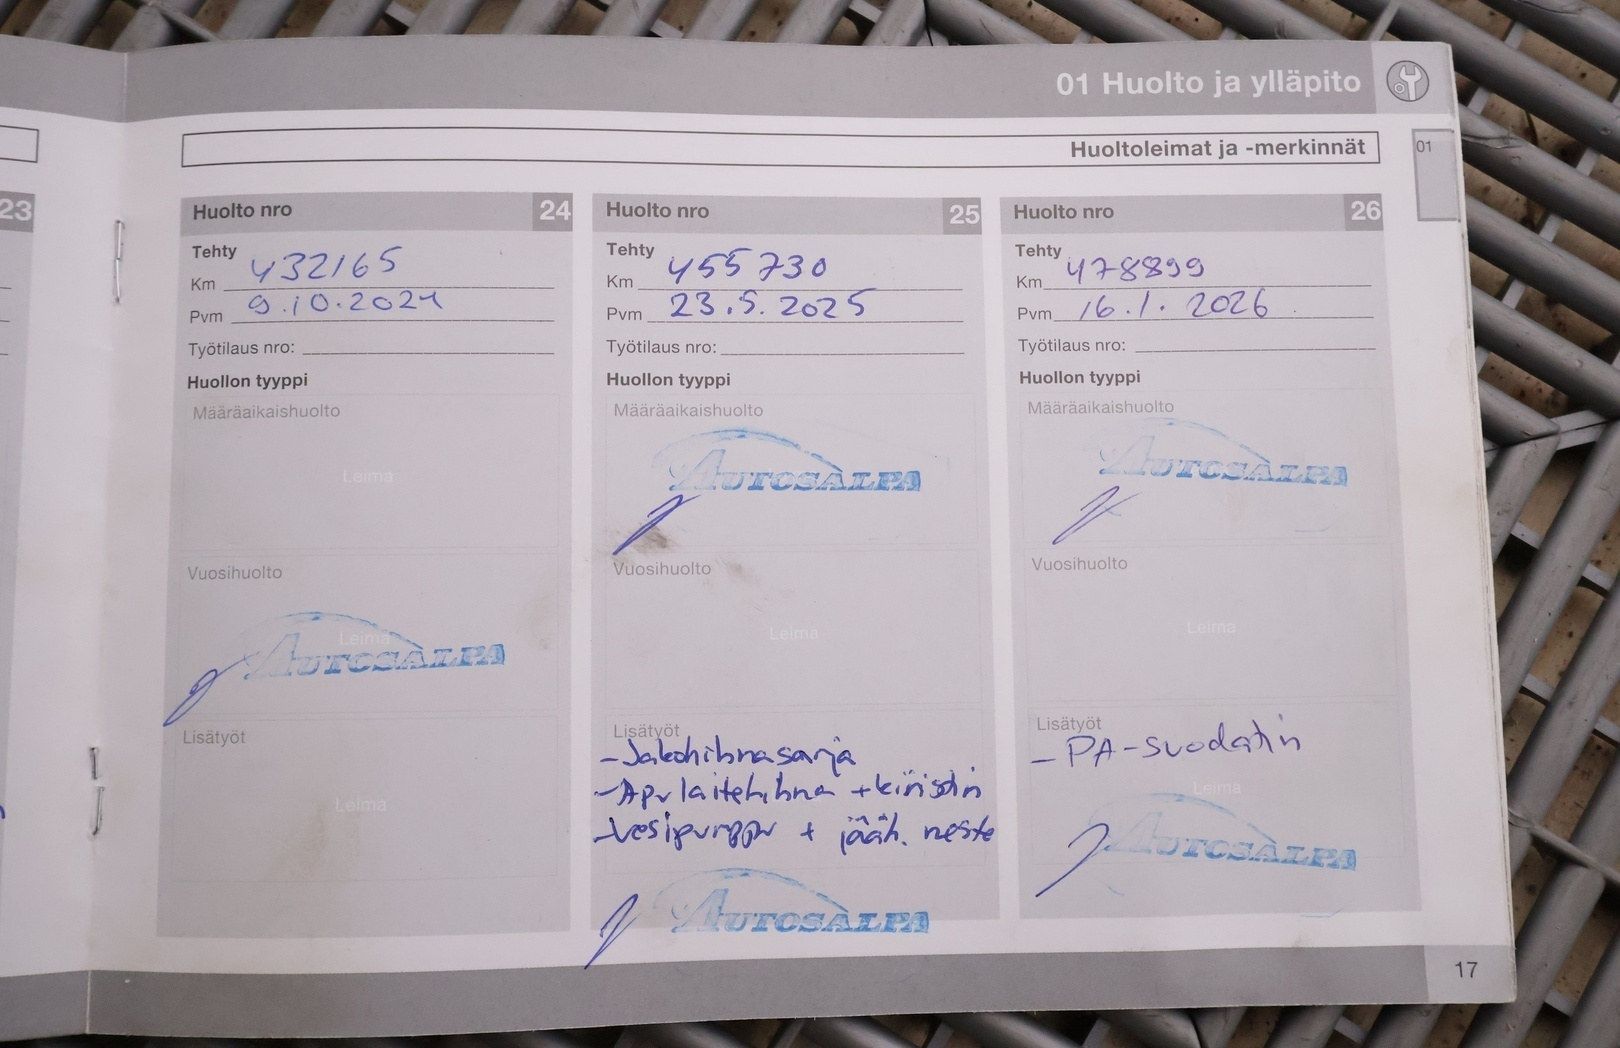 01 Huolto ja ylläpito
Huoltoleimat ja -merkinnät
01
23
Huolto nro 24
Tehty
Km 432165
Pvm 9.10.2024
Työtilaus nro:
Huollon tyyppi
Määräaikaishuolto
Leima
Vuosihuolto
Leima
AUTOSALPA
Lisätyöt
Leima
Huolto nro 25
Tehty
Km 455730
Pvm 23.5.2025
Työtilaus nro:
Huollon tyyppi
Määräaikaishuolto
AUTOSALPA
Vuosihuolto
Leima
Lisätyöt
- Jakohihnasarja
- Apulaitehihna + kiristin
- Vesipumppu + jääh. neste
AUTOSALPA
Huolto nro 26
Tehty
Km 478899
Pvm 16.1.2026
Työtilaus nro:
Huollon tyyppi
Määräaikaishuolto
AUTOSALPA
Vuosihuolto
Leima
Lisätyöt
- PA-suodatin
Leima
AUTOSALPA
17